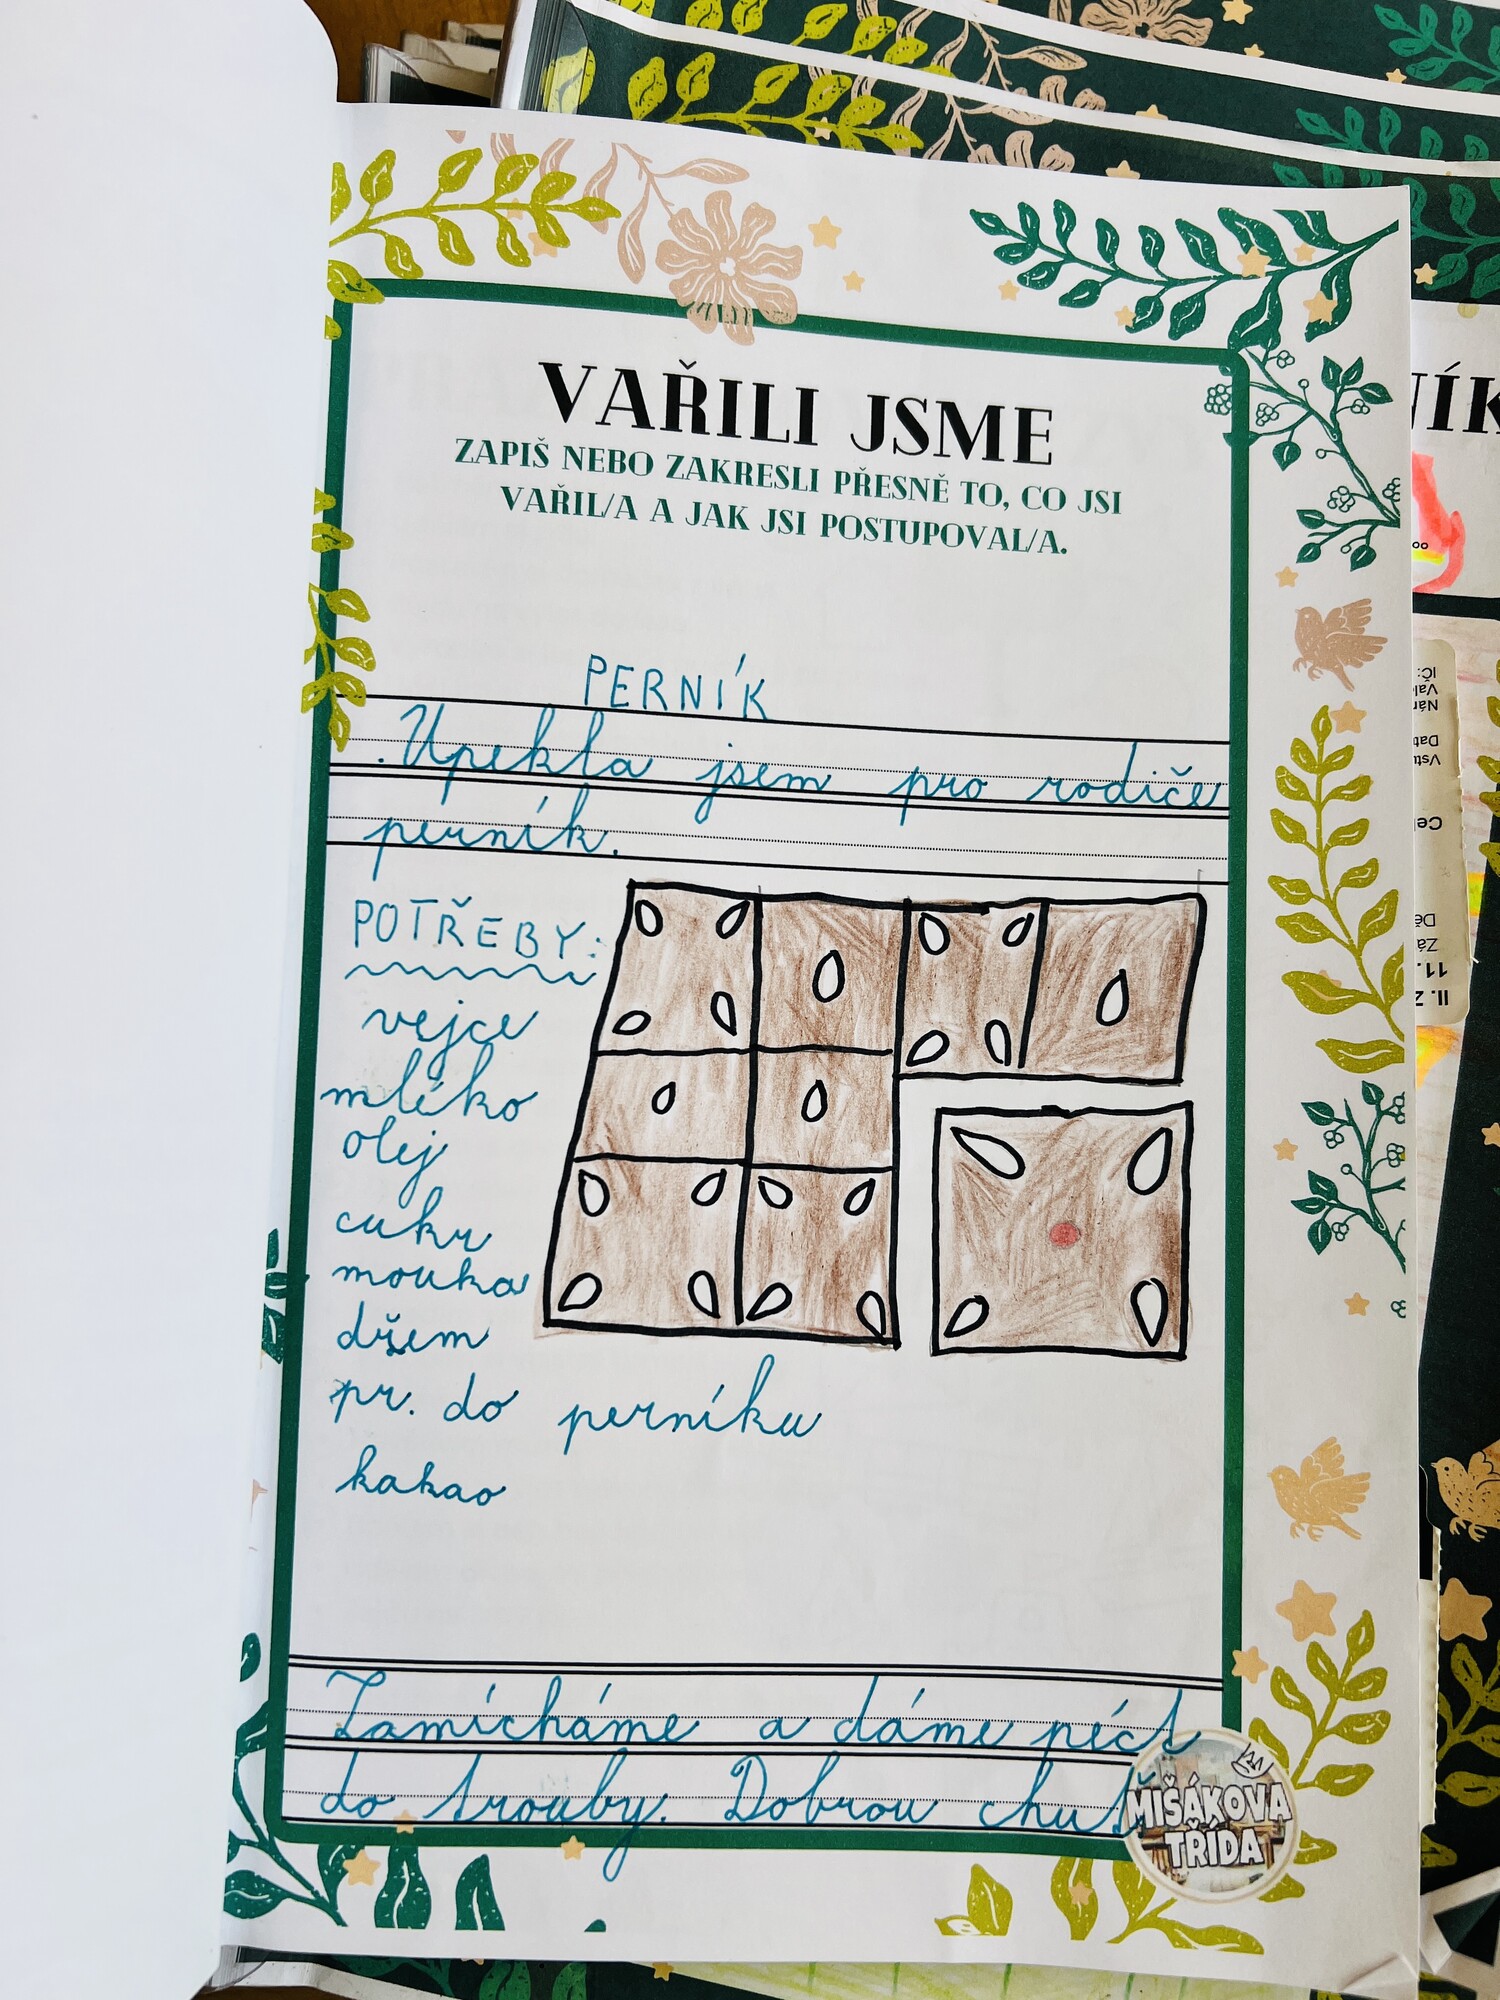 VAŘILI JSME
ZAPIŠ NEBO ZAKRESLI PŘESNĚ TO, CO JSI
VAŘIL/A A JAK JSI POSTUPOVAL/A.
PERNÍK
Upekla jsem pro rodiče
perník.
POTŘEBY:
vejce
mléko
olej
cukr
mouka
džem
pr. do perníku
kakao
Zamícháme a dáme péct
do trouby. Dobrou chuť
MIŠÁKOVA
TŘÍDA
ÍK
IČ:
Nár
Datu
Cel
Zá
11.
II. Z